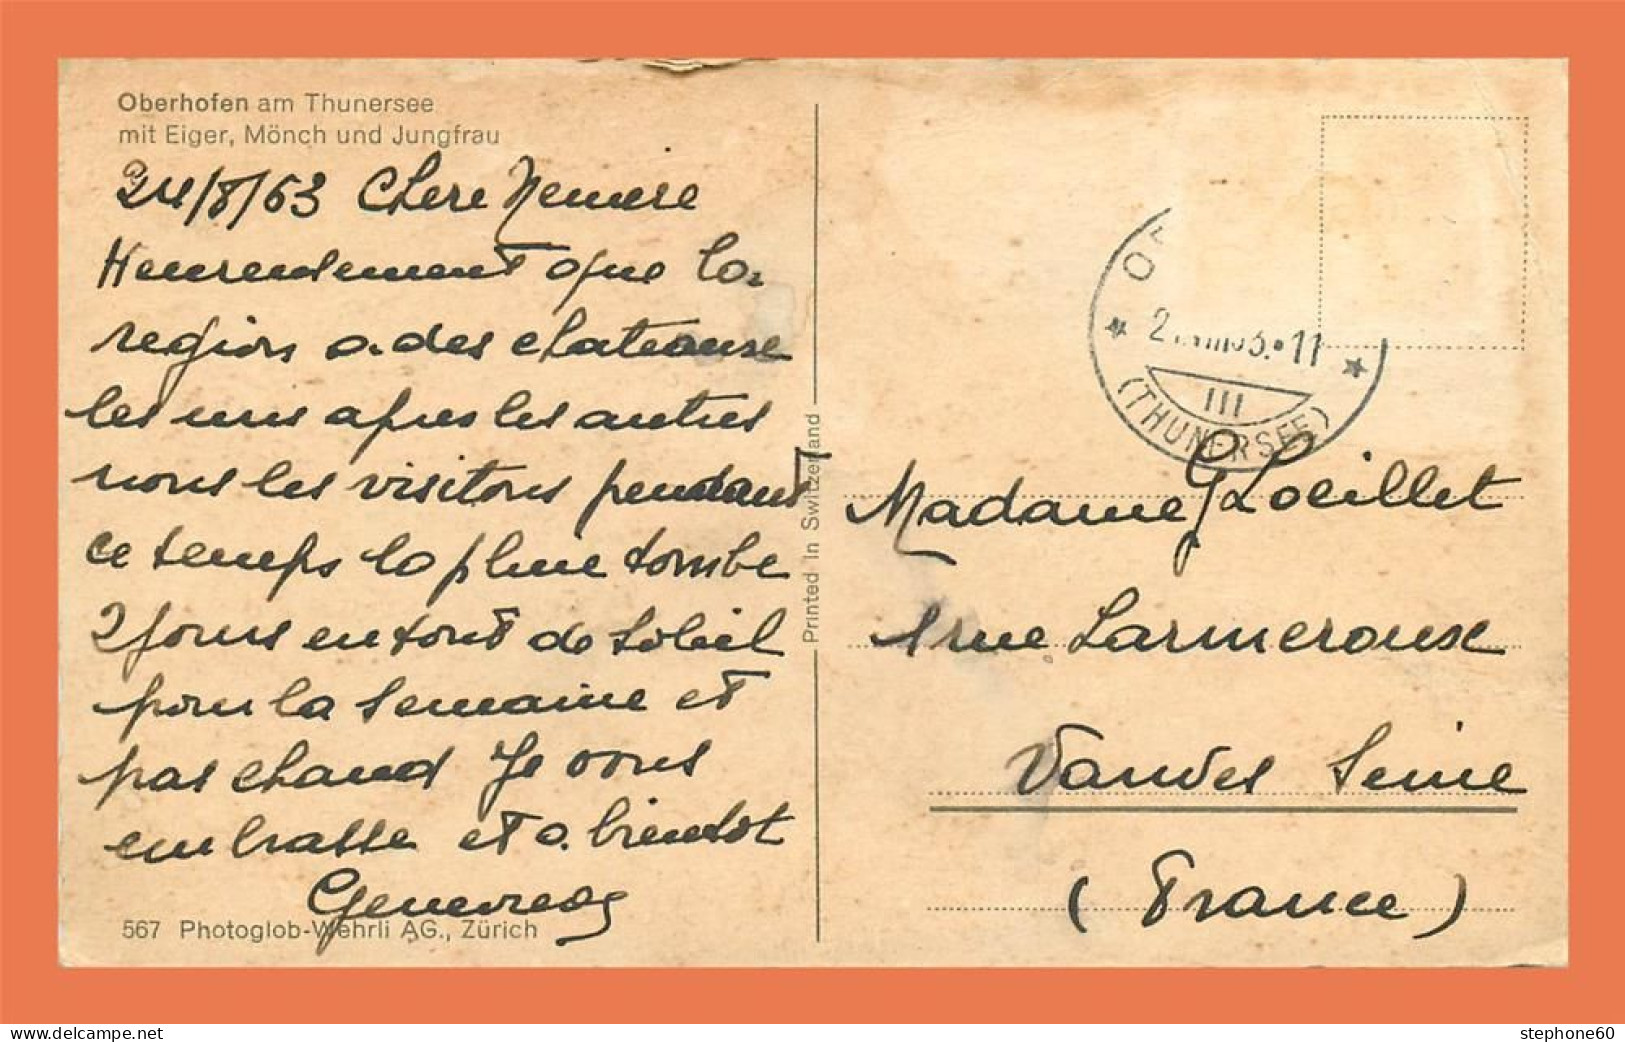 Oberhofen am Thunersee
mit Eiger, Mönch und Jungfrau
24/8/63 Chere Memere
Heureusement que la
region a des chateaux
les uns apres les autres
nous les visitons pendant
ce temps la pluie tombe
2 jours en tout de soleil
pour la semaine et
pas chaud Je vous
embrasse et a bientot
567 Photoglob-Wehrli AG., Zürich
Printed in Switzerland
11
III
(THUNERSEE)
Madame Loeillet
1 rue Larmeroux
Vanves Seine
(France)
delcampe.net
stephone60